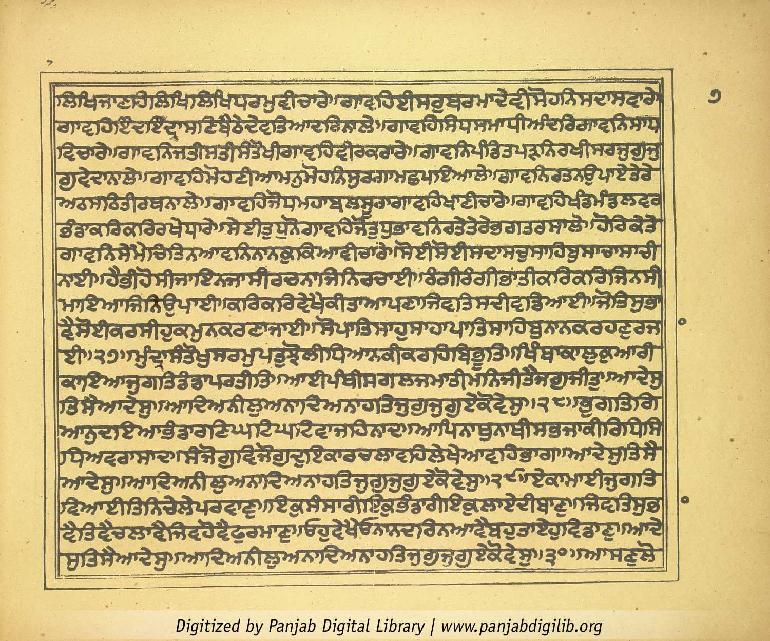 ਲਿਖਿਜਾਣਹਿਲਿਖਿਲਿਖਿਧਰਮੁਵੀਚਾਰੇ॥ਗਾਵਹਿਈਸਰੁਬਰਮਾਦੇਵੀਸੋਹਨਿਸਦਾਸਵਾਰੇ ੭
ਗਾਵਹਿਇੰਦਇਦਾਸਣਿਬੈਠੇਦੇਵਤਿਆਦਰਿਨਾਲੇ॥ਗਾਵਹਿਸਿਧਸਮਾਧੀਅੰਦਰਿਗਾਵਨਿਸਾਧ
ਵਿਚਾਰੇ॥ਗਾਵਨਿਜਤੀਸਤੀਸੰਤੋਖੀਗਾਵਹਿਵੀਰਕਰਾਰੇ॥ਗਾਵਨਿਪੰਡਿਤਪੜਨਿਰਖੀਸਰਜੁਗੁਜੁ
ਗੁਵੇਦਾਨਾਲੇ॥ਗਾਵਹਿਮੋਹਣੀਆਮਨੁਮੋਹਨਿਸੁਰਗਾਮਛਪਇਆਲੇ॥ਗਾਵਨਿਰਤਨਉਪਾਏਤੇਰੇ
ਅਠਸਠਿਤੀਰਥਨਾਲੇ॥ਗਾਵਹਿਜੋਧਮਹਾਬਲਸੂਰਾਗਾਵਹਿਖਾਣੀਚਾਰੇ॥ਗਾਵਹਿਖੰਡਮੰਡਲਵਰ
ਭੰਡਾਕਰਿਕਰਿਰਖੇਧਾਰੇ॥ਸੇਈਤੁਧੁਨੋਗਾਵਹਿਜੋਤੁਧੁਭਾਵਨਿਰਤੇਤੇਰੇਭਗਤਰਸਾਲੇ॥ਹੋਰਿਕੇਤੇ
ਗਾਵਨਿਸੇਮੈਚਿਤਿਨਆਵਨਿਨਾਨਕੁਕਿਆਵੀਚਾਰੇ॥ਸੋਈਸੋਈਸਦਾਸਚੁਸਾਹਿਬੁਸਾਚਾਸਾਚੀ
ਨਾਈ॥ਹੈਭੀਹੋਸੀਜਾਇਨਜਾਸੀਰਚਨਾਜਿਨਿਰਚਾਈ॥ਰੰਗੀਰੰਗੀਭਾਤੀਕਰਿਕਰਿਜਿਨਸੀ
ਮਾਇਆਜਿਨਿਉਪਾਈ॥ਕਰਿਕਰਿਵੇਖੈਕੀਤਾਆਪਣਾਜਿਵਤਿਸਦੀਵਡਿਆਈ॥ਜੋਤਿਸੁਭਾ
ਵੈਸੋਈਕਰਸੀਹੁਕਮੁਨਕਰਣਾਜਾਈ॥ਸੋਪਾਤਿਸਾਹੁਸਾਹਾਪਾਤਿਸਾਹਿਬੁਨਾਨਕਰਹਣੁਰਜਾ
ਈ॥੨੭॥ਮੁੰਦਾਸੰਤੋਖੁਸਰਮੁਪਤੁਝੋਲੀਧਿਆਨਕੀਕਰਹਿਬਿਭੂਤਿ॥ਖਿੰਥਾਕਾਲੁਕੁਆਰੀ
ਕਾਇਆਜੁਗਤਿਡੰਡਾਪਰਤੀਤਿ॥ਆਈਪੰਥੀਸਗਲਜਮਾਤੀਮਨਿਜੀਤੈਜਗੁਜੀਤੁ॥ਆਦੇਸੁ
ਤਿਸੈਆਦੇਸੁ॥ਆਦਿਅਨੀਲੁਅਨਾਦਿਅਨਾਹਤਿਜੁਗੁਜੁਗੁਏਕੋਵੇਸੁ॥੨੮॥ਭੁਗਤਿਗਿ
ਆਨੁਦਇਆਭੰਡਾਰਣਿਘਟਿਘਟਿਵਾਜਹਿਨਾਦ॥ਆਪਿਨਾਥੁਨਾਥੀਸਭਜਾਕੀਰਿਧਿਸਿ
ਧਿਅਵਰਾਸਾਦ॥ਸੰਜੋਗੁਵਿਜੋਗੁਦੁਇਕਾਰਚਲਾਵਹਿਲੇਖੇਆਵਹਿਭਾਗ॥ਆਦੇਸੁਤਿਸੈ
ਆਦੇਸੁ॥ਆਦਿਅਨੀਲੁਅਨਾਦਿਅਨਾਹਤਿਜੁਗੁਜੁਗੁਏਕੋਵੇਸੁ॥੨੯॥ਏਕਾਮਾਈਜੁਗਤਿ
ਵਿਆਈਤਿਨਿਚੇਲੇਪਰਵਾਣੁ॥ਇਕੁਸੰਸਾਰੀਇਕੁਭੰਡਾਰੀਇਕੁਲਾਏਦੀਬਾਣੁ॥ਜਿਵਤਿਸੁਭਾ
ਵੈਤਿਵੈਚਲਾਵੈਜਿਵਹੋਵੈਫੁਰਮਾਣੁ॥ਓਹੁਵੇਖੈਓਨਾਨਦਰਿਨਆਵੈਬਹੁਤਾਏਹੁਵਿਡਾਣੁ॥ਆਦੇ
ਸੁਤਿਸੈਆਦੇਸੁ॥ਆਦਿਅਨੀਲੁਅਨਾਦਿਅਨਾਹਤਿਜੁਗੁਜੁਗੁਏਕੋਵੇਸੁ॥੩੦॥ਆਸਣੁਲੋ
Digitized by Panjab Digital Library | www.panjabdigilib.org